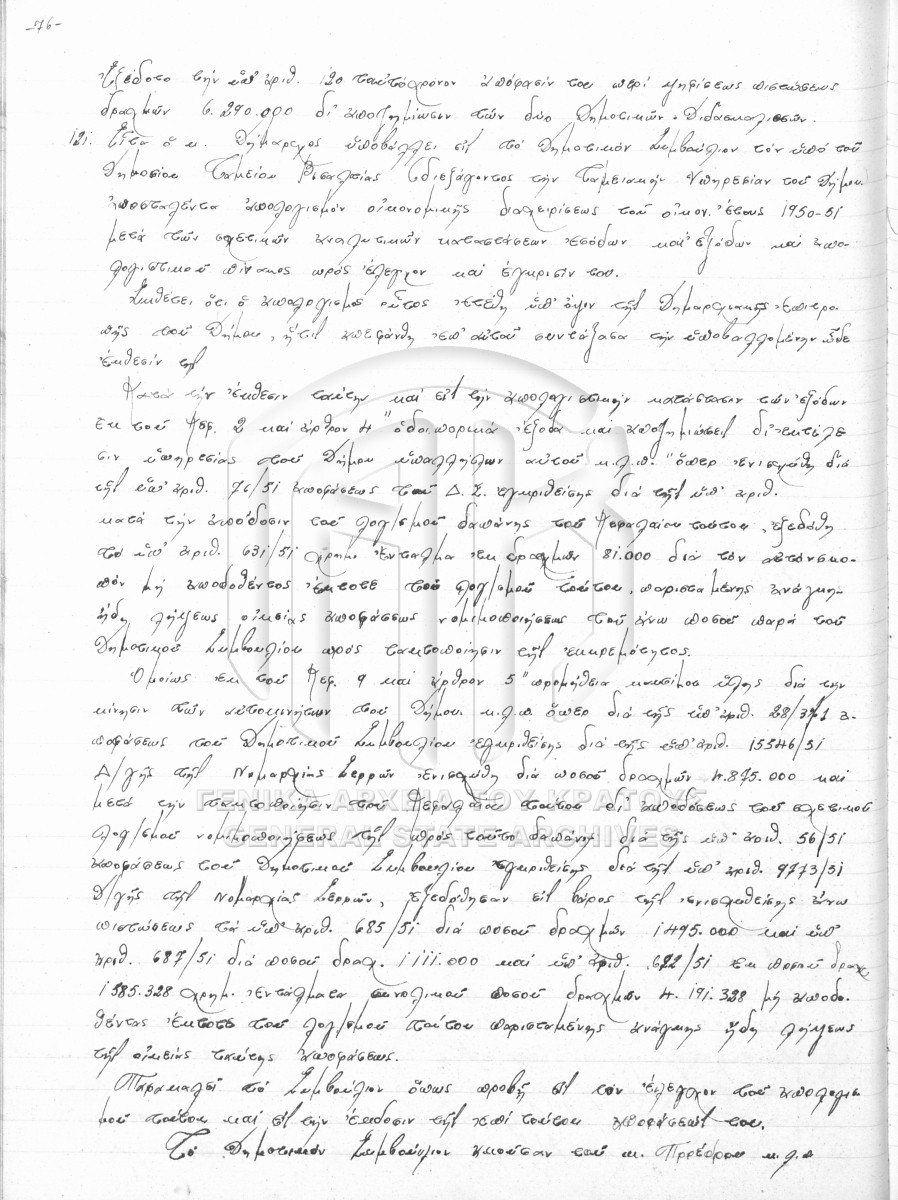 -76-
Ἐξέδοτο τὴν ὑπ' ἀριθ. 120 ταὐτόχρονον ἀπόφασίν του περί ψηφίσεως πιστώσεως
δραχμῶν 6.290.000 δι' ἀποζημίωσιν τῶν δύο Δημοτικῶν Διδασκαλισσῶν.
121. Εἶτα ὁ κ. Δήμαρχος ὑποβάλλει εἰς τὸ Δημοτικόν Συμβούλιον τὸν ὑπό τοῦ
Δημοσίου Ταμείου Βισαλτίας διεξάγοντος τὴν Ταμειακήν Ὑπηρεσίαν τοῦ Δήμου
ἀποσταλέντα ἀπολογισμόν οἰκονομικῆς διαχειρίσεως τοῦ οἰκον. ἔτους 1950-51
μετά τῶν σχετικῶν ἀναλυτικῶν καταστάσεων ἐσόδων καί ἐξόδων καί ἀπο-
λογιστικοῦ πίνακος πρός ἔλεγχον καί ἔγκρισίν του.
Ἐκθέτει ὅτι ὁ ἀπολογισμός οὗτος ἐτέθη ὑπ' ὄψιν τῆς Δημαρχιακῆς Ἐπιτρο-
πῆς τοῦ Δήμου, ἥτις ἀπεφάνθη ἐπ' αὐτοῦ συντάξασα τὴν ὑποβαλλομένην ὧδε
ἔκθεσίν της
Κατά τὴν ἔκθεσιν ταύτην καί εἰς τὴν ἀπολογιστικήν κατάστασιν τῶν ἐξόδων
ἐκ τοῦ Κεφ. 2 καί ἄρθρον 4 "ὁδοιπορικά ἔξοδα καί ἀποζημιώσεις δι' ἐκτέλε
σιν ὑπηρεσίας τοῦ Δήμου ὑπαλλήλων αὐτοῦ κ.λ.π." ὅπερ ἐνισχύθη διά
τῆς ὑπ' ἀριθ. 76/51 ἀποφάσεως τοῦ Δ. Σ. ἐγκριθείσης διά τῆς ὑπ' ἀριθ.
κατά τὴν ἀπόδοσιν τοῦ λογ/σμοῦ δαπάνης τοῦ Κεφαλαίου τούτου, ἐξεδόθη
τό ὑπ' ἀριθ. 631/51 χρημ. ἔνταλμα ἐκ δραχμῶν 81.000 διά τὸν αὐτόν σκο-
πόν μή ἀποδοθέντος ἔκτοτε τοῦ λογ/σμοῦ τούτου, παρισταμένης ἀνάγκης
ἤδη λήψεως οἰκείας ἀποφάσεως νομιμοποιήσεως τοῦ ἄνω ποσοῦ παρά τοῦ
Δημοτικοῦ Συμβουλίου πρός τακτοποίησιν τῆς ἐκκρεμότητος.
Ὁμοίως ἐκ τοῦ Κεφ. 9 καί ἄρθρον 5 "προμήθεια καυσίμου ὕλης διά τὴν
κίνησιν τῶν αὐτοκινήτων τοῦ Δήμου κ.λ.π. ὅπερ διά τῆς ὑπ' ἀριθ. 28/371 ἀ-
ποφάσεως τοῦ Δημοτικοῦ Συμβουλίου ἐγκριθείσης διά τῆς ὑπ' ἀριθ. 15546/51
Δ/γῆς τῆς Νομαρχίας Σερρῶν ἐνισχύθη διά ποσοῦ δραχμῶν 4.875.000 καί
μετά τὴν τακτοποίησιν τοῦ Κεφαλαίου τούτου δι' ἀποδόσεως τοῦ σχετικοῦ
λογ/σμοῦ νομιμοποιήσεως τῆς πρός τοῦτο δαπάνης διά τῆς ὑπ' ἀριθ. 56/51
ἀποφάσεως τοῦ Δημοτικοῦ Συμβουλίου ἐγκριθείσης διά τῆς ὑπ' ἀριθ. 9773/51
Δ/γῆς τῆς Νομαρχίας Σερρῶν, ἐξεδόθησαν εἰς βάρος τῆς ἐνισχυθείσης ἄνω
πιστώσεως τά ὑπ' ἀριθ. 685/51 διά ποσοῦ δραχμῶν 1495.000 καί ὑπ'
ἀριθ. 687/51 διά ποσοῦ δραχ. 1111.000 καί ὑπ' ἀριθ. 622/51 ἐκ ποσοῦ δραχ
1585.328 χρημ. ἐντάλματα συνολικοῦ ποσοῦ δραχμῶν 4.191.328 μή ἀποδο-
θέντος ἔκτοτε τοῦ λογ/σμοῦ τούτου παρισταμένης ἀνάγκης ἤδη λήψεως
τῆς οἰκείας ταύτης ἀποφάσεως.
Παρακαλεῖ τό Συμβούλιον ὅπως προβῇ εἰς τὸν ἔλεγχον τοῦ ἀπολογισ
μοῦ τούτου καί εἰς τὴν ἔκδοσιν τῆς ἐπί τούτου ἀποφάσεώς του.
Τό Δημοτικόν Συμβούλιον ἀκοῦσαν τοῦ κ. Προέδρου κ.λ.π
ΓΕΝΙΚΑ ΑΡΧΕΙΑ ΤΟΥ ΚΡΑΤΟΥΣ
GENERAL STATE ARCHIVES